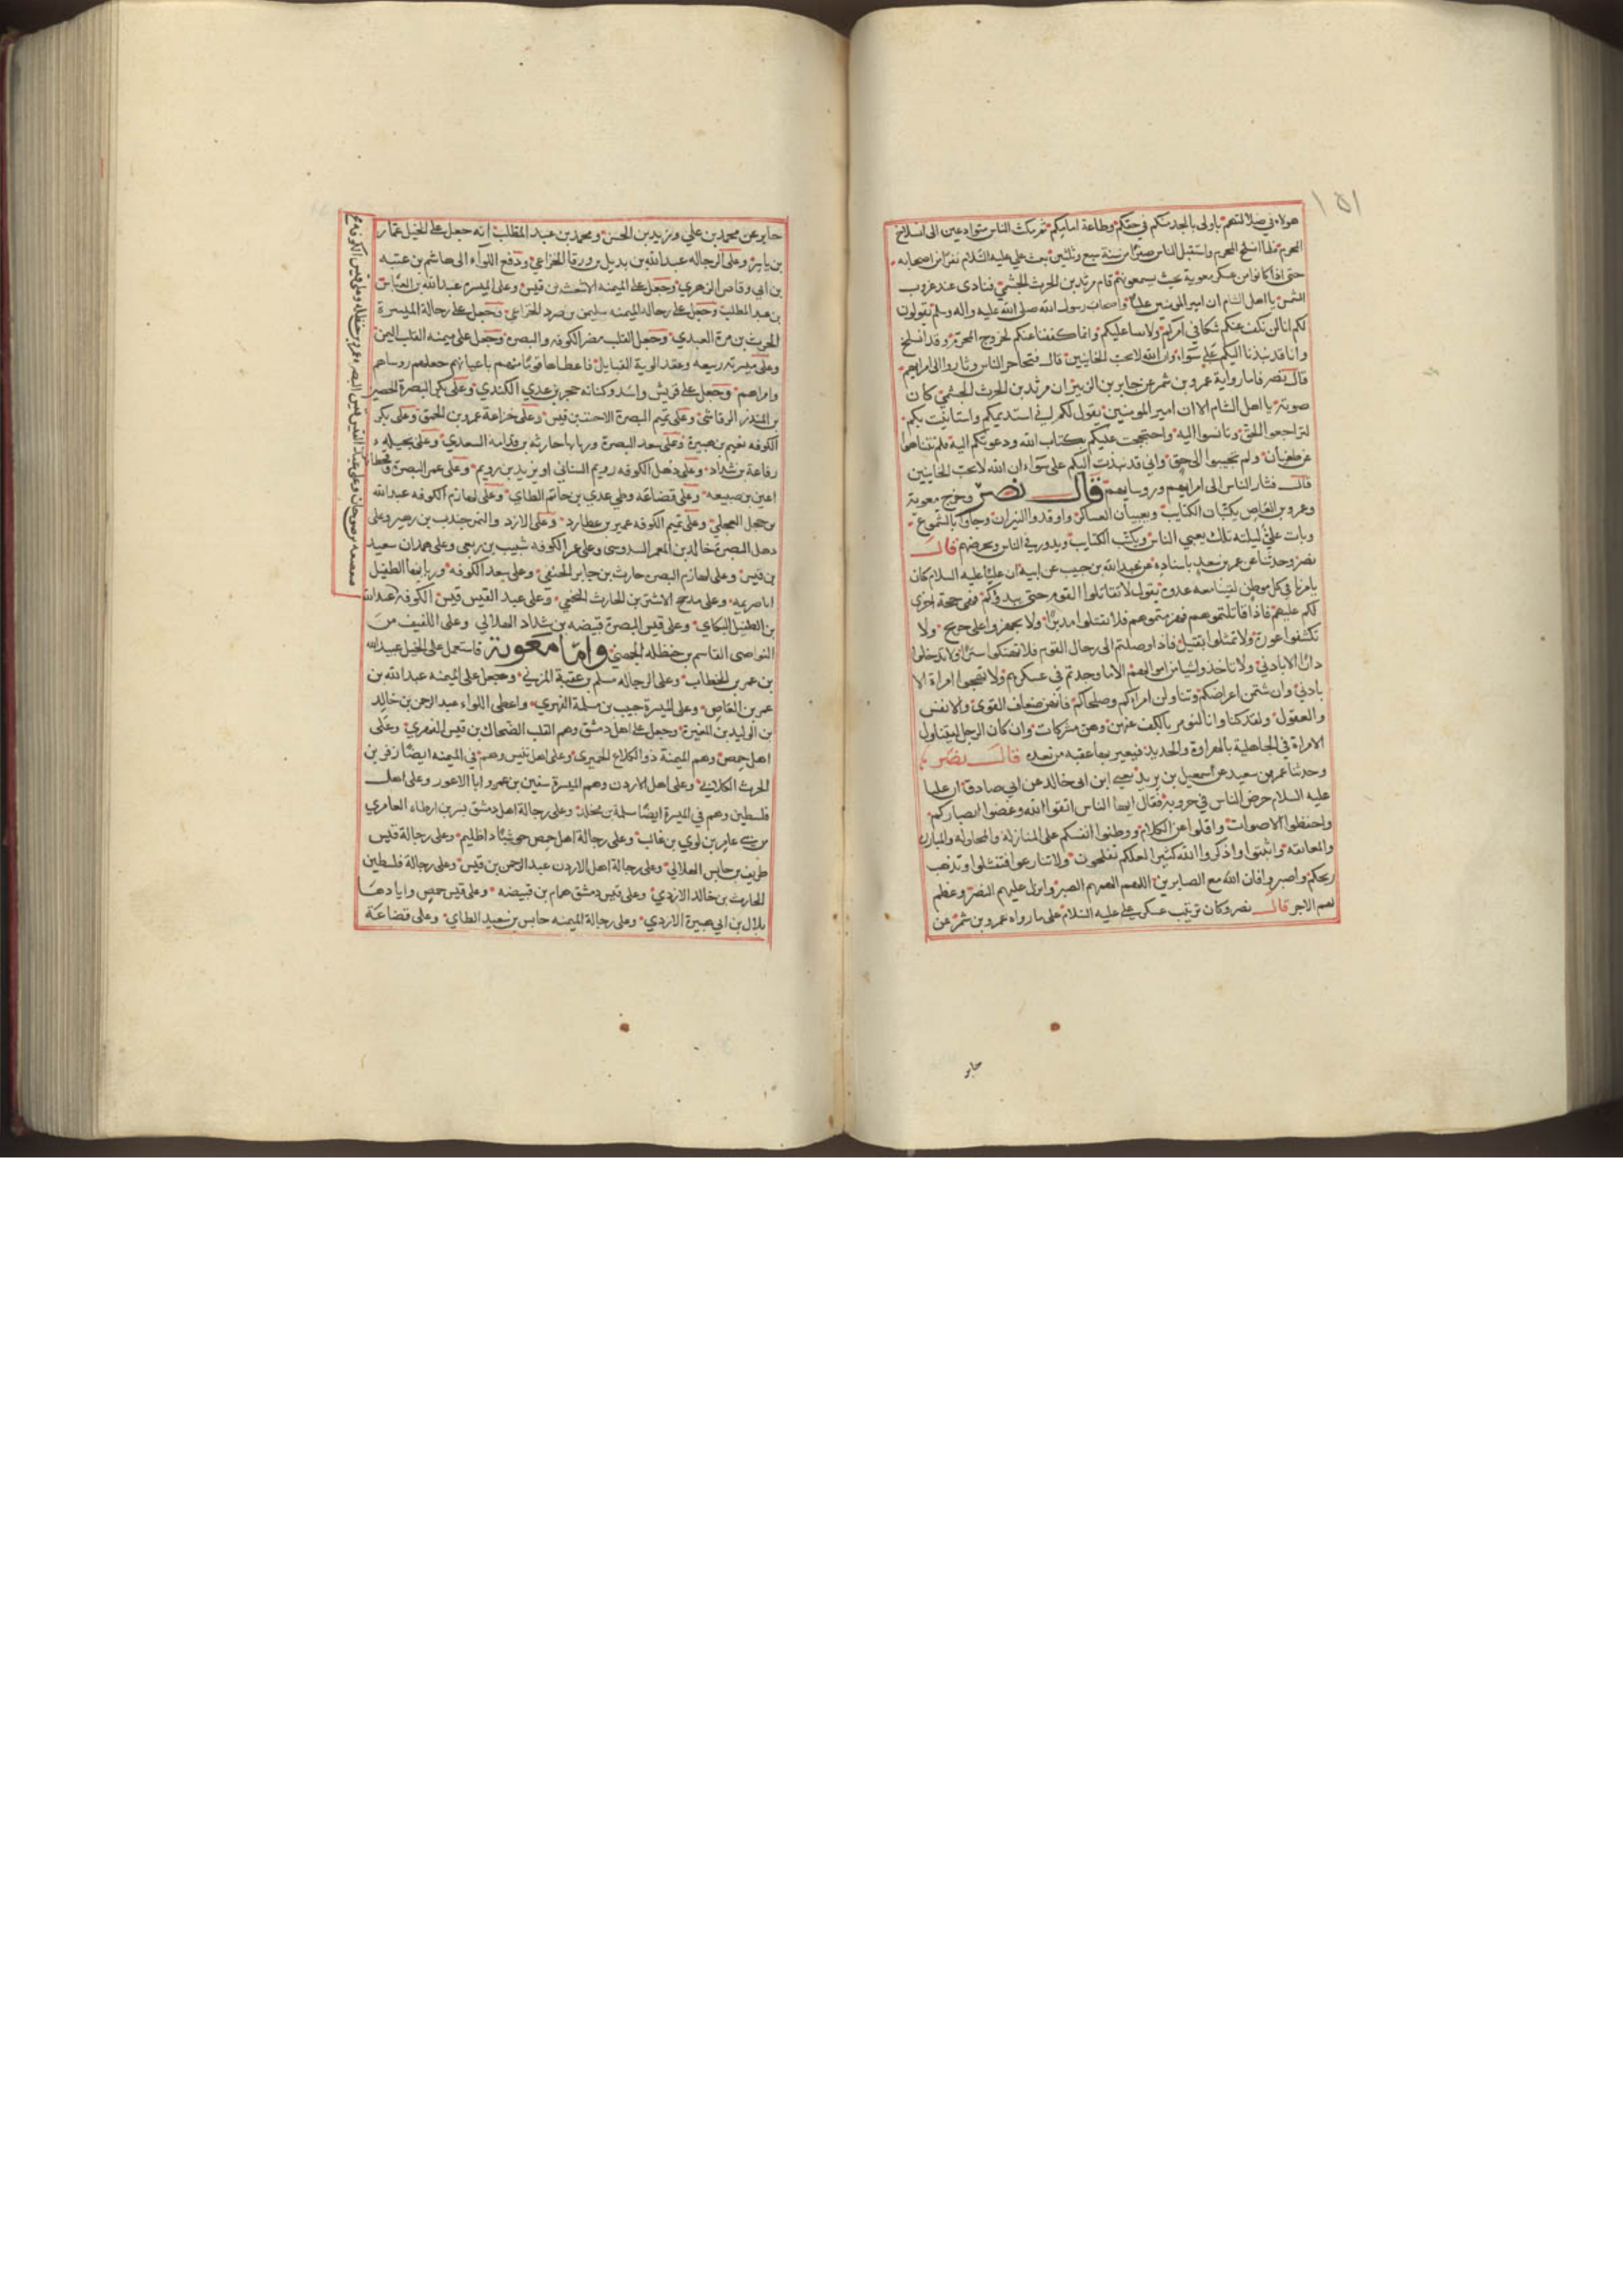 ١٥١
هولاء في ضلالتهم باولى بالجد منكم في حقكم وطاعة امامكم ثم مكث الناس متوادعين الى انسلاخ
المحرم فلما انسلخ المحرم واستقبل الناس صفرا من سنة سبع وثلثين بعث علي عليه السلام نفرا من اصحابه
حتى اذا كانوا من عسكر معوية بحيث يسمعونهم قام مرثد بن الحرث الجشمي فنادى عند غروب
الشمس يا اهل الشام ان امير المومنين عليا واصحاب رسول الله صلى الله عليه واله وسلم يقولون
لكم انا لن نكف عنكم شكا في امركم ولا بقيا عليكم وانما كففنا عنكم لخروج المحرم وقد انسلخ
وانا قد نبذنا اليكم على سواء وان الله لا يحب الخاينين قال فتحاجز الناس وثاروا الى امرايهم
قال نصر فاما رواية عمرو بن شمر عن جابر عن الزبير ان مرثد بن الحرث الجشمي كان
صوته يا اهل الشام الا ان امير المومنين يقول لكم اني استدمتكم واستانيت بكم
لتراجعوا الحق وتانسوا اليه واحتججت عليكم بكتاب الله ودعوتكم اليه فلم تتناهوا
عن طغيان ولم تجيبوا الى حق واني قد نبذت اليكم على سواء ان الله لا يحب الخاينين
قال فثار الناس الى امرايهم وروسايهم قال نصر وخرج معوية
وعمرو بن العاص يكتبان الكتايب ويعبيان العساكر واوقدوا النيران وجاوا بالشموع
وبات علي ليلته تلك يعبي الناس ويكتب الكتايب ويدور في الناس ويحرضهم قال
نصر وحدثنا عمر بن سعد باسناده عن عبد الله بن جندب عن ابيه ان عليا عليه السلام كان
يامرنا في كل موطن لقينا معه عدوه يقول لا تقاتلوا القوم حتى يبدؤكم فهي حجة اخرى
لكم عليهم فاذا قاتلتموهم فهزمتموهم فلا تقتلوا مدبرا ولا تجهزوا على جريح ولا
تكشفوا عورة ولا تمثلوا بقتيل فاذا وصلتم الى رحال القوم فلا تهتكوا سترا ولا تدخلوا
دارا الا باذني ولا تاخذوا شيا من اموالهم الا ما وجدتم في عسكرهم ولا تهيجوا امراة الا
باذني وان شتمن اعراضكم وتناولن امراءكم وصلحاءكم فانهن ضعاف القوى والانفس
والعقول ولقد كنا وانا لنومر بالكف عنهن وهن مشركات وان كان الرجل ليتناول
الامراة في الجاهلية بالهراوة والحديد فيعير بها عقبه من بعده قال نصر
وحدثنا عمر بن سعيد عن اسمعيل بن يزيد يعني ابن ابي خالد عن ابي صادق ان عليا
عليه السلام حرض الناس في حروبه فقال ايها الناس اتقوا الله وغضوا ابصاركم
واحفظوا الاصوات واقلوا من الكلام ووطنوا انفسكم على المنازلة والمحاولة والمبارزة
والمعانقه واثبتوا واذكروا الله كثيرا لعلكم تفلحون ولا تنازعوا فتفشلوا وتذهب
ريحكم واصبروا فان الله مع الصابرين اللهم الهمهم الصبر وانزل عليهم النصر وعظم
لهم الاجر قال نصر وكان ترتيب عسكر علي عليه السلام على ما رواه عمرو بن شمر عن
جابر
جابر عن محمد بن علي وزيد بن الحسن ومحمد بن عبد المطلب انه جعل على الخيل عمار
بن ياسر وعلى الرجاله عبد الله بن بديل بن ورقا الخزاعي ودفع اللواء الى هاشم بن عتبه
بن ابي وقاص الزهري وجعل على الميمنه الاشعث بن قيس وعلى الميسره عبد الله بن العباس
بن عبد المطلب وجعل على رجاله الميمنه سليمن بن صرد الخزاعي وجعل على رجالة الميسرة
الحرث بن مرة العبدي وجعل القلب مضر الكوفه والبصره وجعل على ميمنه القلب اليمن
وعلى ميسرته ربيعه وعقد الوية القبايل فاعطاها قوما منهم باعيانهم جعلهم روساهم
وامراهم وجعل على قريش واسد وكنانه حجر بن عدي الكندي وعلى بكر البصرة الحضين
بن المنذر الرقاشي وعلى تميم البصرة الاحنف بن قيس وعلى خزاعة عمرو بن الحمق وعلى بكر
الكوفه نعيم بن هبيرة وعلى سعد البصرة وربابها حارثه بن قدامه السعدي وعلى بجيله
رفاعة بن شداد وعلى ذهل الكوفه رويم الشناني او يزيد بن رويم وعلى عمر البصرة وحنظله
اعين بن ضبيعه وعلى قضاعه وطي عدي بن حاتم الطاي وعلى لهازم الكوفه عبد الله
بن حجل العجلي وعلى تميم الكوفه عمير بن عطارد وعلى الازد واليمن جندب بن زهير وعلى
ذهل البصرة خالد بن المعمر السدوسي وعلى عمرو الكوفه شبيب بن ربعي وعلى همدان سعيد
بن قيس وعلى لهازم البصره حارث بن جابر الحنفي وعلى سعد الكوفه وربابها الطفيل
ابا صريمه وعلى مذحج الاشتر بن الحارث النخعي وعلى عبد القيس قيس الكوفه عبد الله
بن الطفيل البكاي وعلى قيس البصرة قبيضه بن شداد الهلالي وعلى اللفيف من
النواصي القاسم بن حنظله الجهني واما معوية فاستعمل على الخيل عبيد الله
بن عمر بن الخطاب وعلى الرجاله مسلم بن عقبة المزني وجعل على الميمنه عبد الله بن
عمر بن العاص وعلى الميسرة حبيب بن مسلمة الفهري واعطى اللواء عبد الرحمن بن خالد
بن الوليد بن المغيرة وجعل على اهل دمشق وهم القلب الضحاك بن قيس الفهري وعلى
اهل حمص وهم الميمنة ذو الكلاع الحميري وعلى اهل قنسرين وهم في الميمنه ايضا زفر بن
الحرث الكلابي وعلى اهل الاردن وهم الميسرة سفين بن عمرو ابا الاعور وعلى اهل
فلسطين وهم في الميسرة ايضا مسلمة بن مخلد وعلى رجالة اهل دمشق بسر بن ارطاء العامري
من بني عامر بن لوي بن غالب وعلى رجالة اهل حمص حوشبا ذا ظليم وعلى رجالة قيس
طريف بن حابس الهلالي وعلى رجالة اهل الاردن عبد الرحمن بن قيس وعلى رجالة فلسطين
الحارث بن خالد الازدي وعلى قيس دمشق همام بن قبيضه وعلى قيس حمص واياد ها
بلال بن ابي هبيرة الازدي وعلى رجالة الميمنه حابس بن سعيد الطاي وعلى قضاعة
صعصعه بن صوحان وعلى عبد القيس البصره عمرو بن حنظله وعلى قيس الكوفه